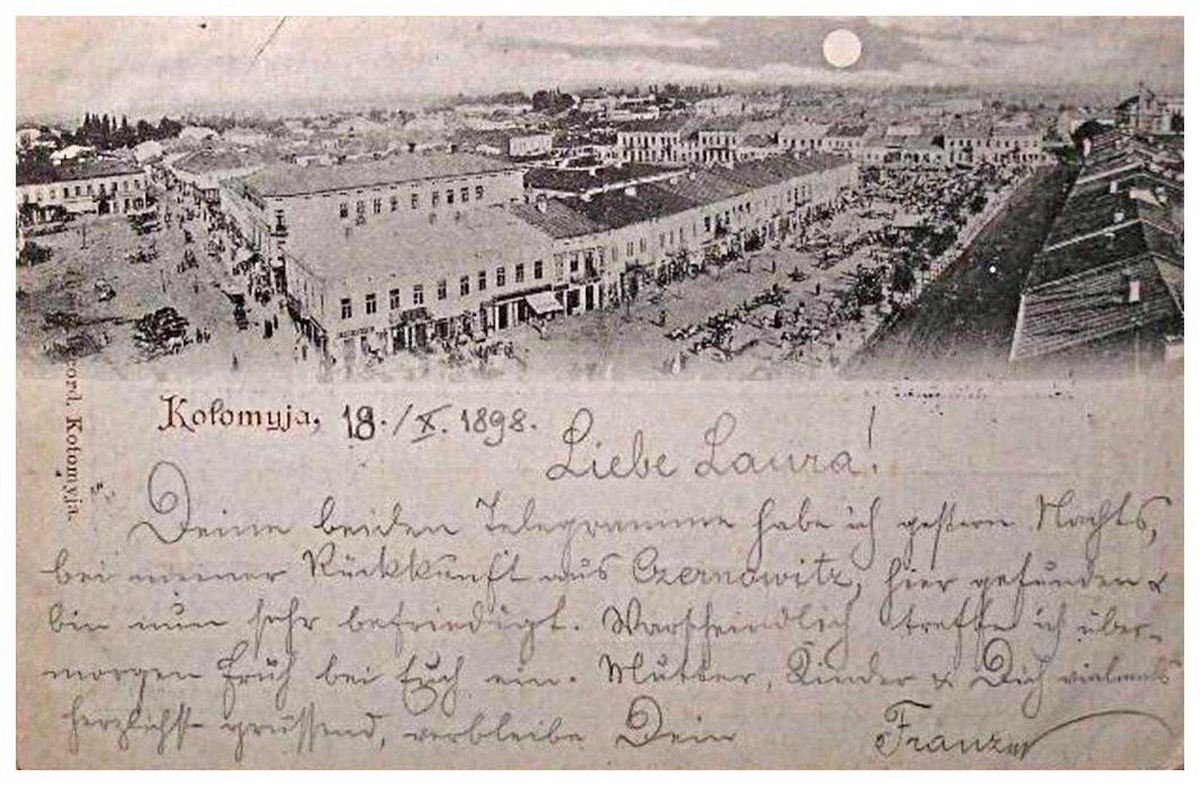 Kołomyja, 18./X. 1898.
Liebe Laura!
Deine beiden Telegramme habe ich gestern Nachts,
bei meiner Rückkunft aus Czernowitz, hier gefunden &
bin nun sehr befriedigt. Warscheindlich treffe ich über-
morgen früh bei Euch ein. Mutter, Kinder & Dich vielmals
herzlichst grüssend, verbleibe Dein
Franz
Kołomyja.